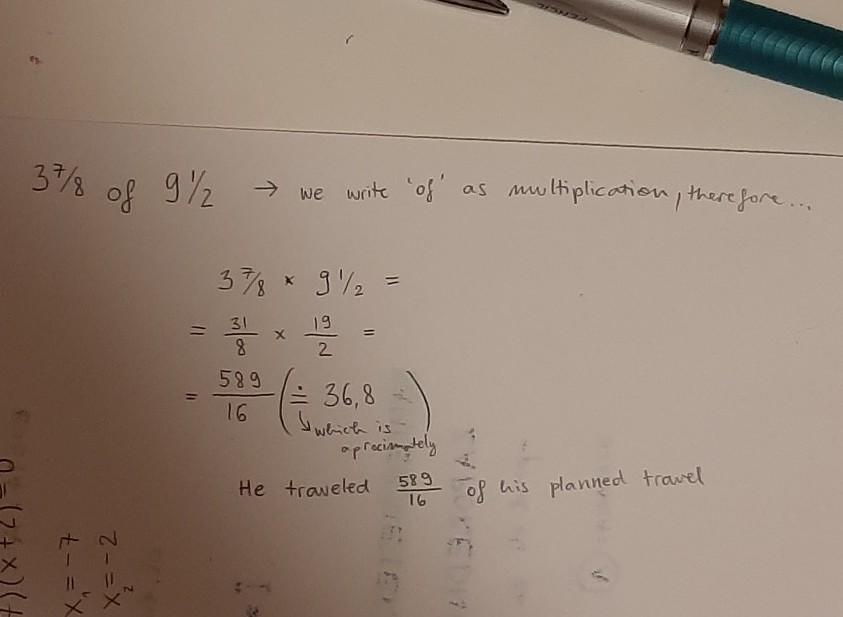 PENCIL
3 7/8 of 9 1/2 → we write 'of' as multiplication, therefore...
3 7/8 × 9 1/2 =
= 31/8 × 19/2 =
= 589/16 (≐ 36,8
↳ which is
aproximately)
He traveled 589/16 of his planned travel
)(x+2)=0
x₁=-7
x₂=-2